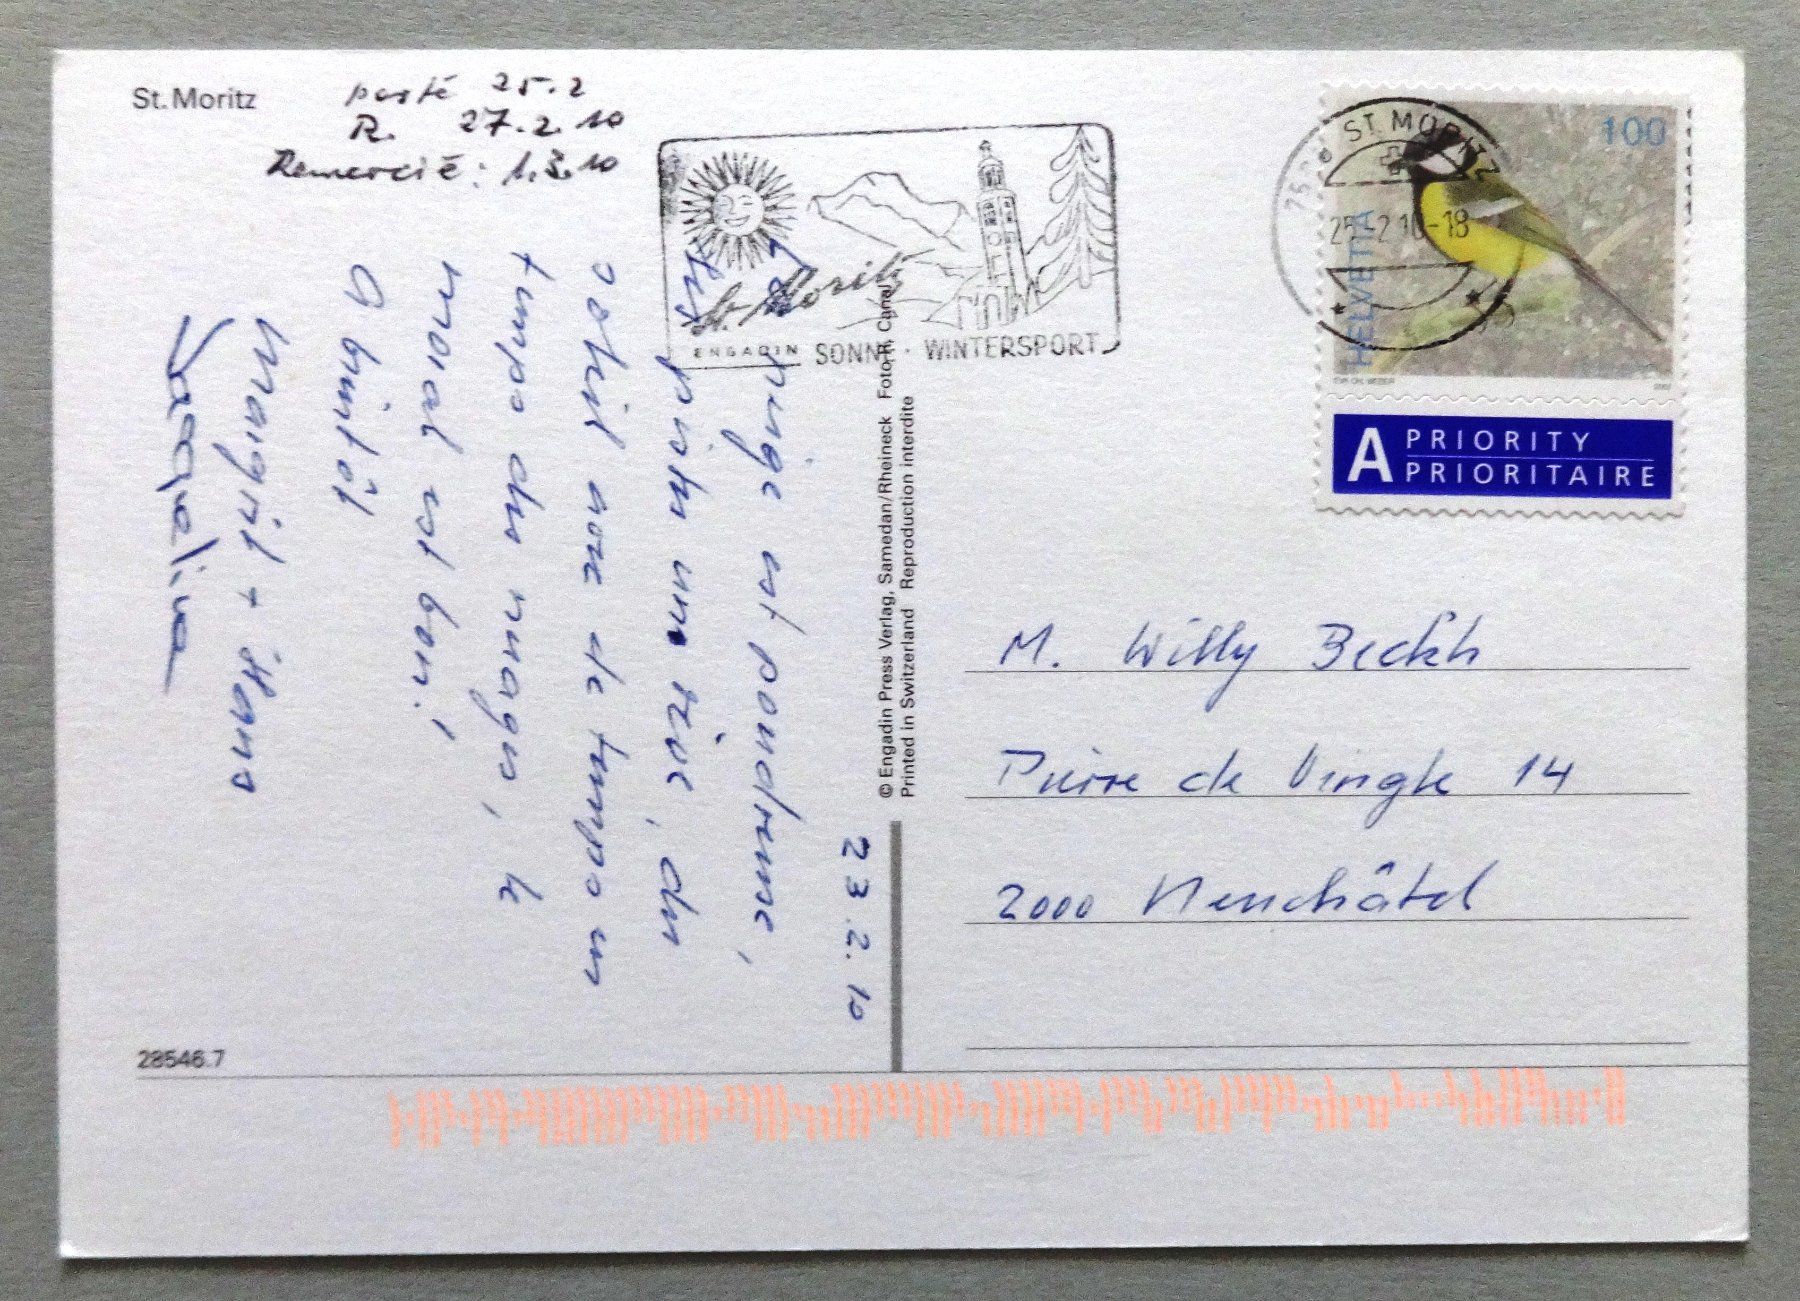 St. Moritz
posté 25.2
R. 27.2.10
Remercié: 1.3.10
St. Moritz
ENGADIN SONNE · WINTERSPORT
7500 ST. MORITZ
25.-2.10-18
100
HELVETIA
A PRIORITY
PRIORITAIRE
23.2.10
La neige est poudreuse,
les pistes une rêve, du
soleil avec de temps en
temps des nuages, le
moral est bon!
A bientôt
Margrit + Hans
Jaqueline
© Engadin Press Verlag, Samedan/Rheineck Foto R. Canal
Printed in Switzerland Reproduction interdite
M. Willy
Pierre de Vingle 14
2000 Neuchâtel
28546.7